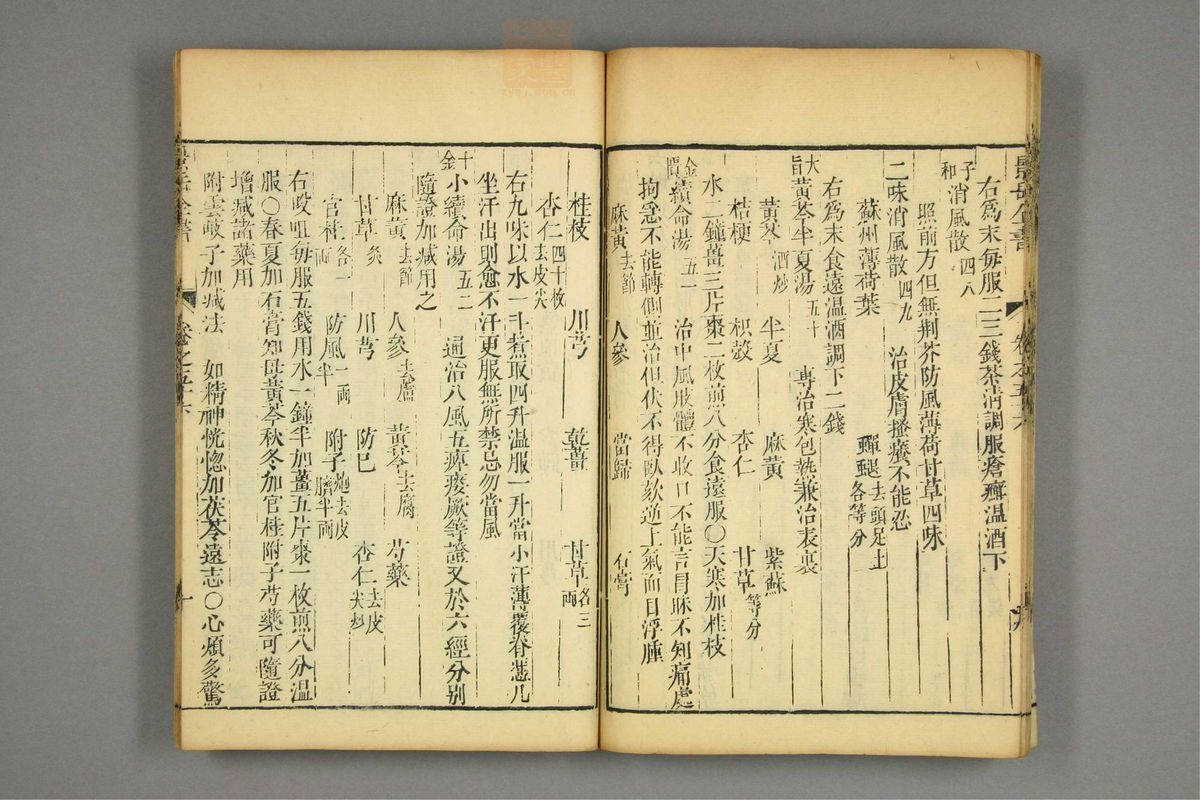 景岳全書
右爲末每服二三錢茶清調服瘡癬温酒下
子和消風散四八
照前方但無荆芥防風薄荷甘草四味
二味消風散四九 治皮膚搔癢不能忍
蘇州薄荷葉 蟬蜕去頭足土各等分
右爲末食遠温酒調下二錢
大旨黃芩半夏湯五十 專治寒包熱兼治表裏
黃芩酒炒 半夏 麻黃 紫蘇
桔梗 枳殼 杏仁 甘草等分
水二鐘薑三片棗二枚煎八分食遠服〇天寒加桂枝
金匱續命湯五一 治中風肢體不收口不能言冒昧不知痛處
拘急不能轉側並治但伏不得臥欬逆上氣面目浮腫
麻黃去節 人參 當歸 石膏
桂枝 川芎 乾薑 甘草各三兩
杏仁四十枚去皮尖
右九味以水一斗煮取四升温服一升當小汗薄覆脊凭几
坐汗出則愈不汗更服無所禁忌勿當風
千金小續命湯五二 通治八風五痺痿厥等證又於六經分别
隨證加减用之
麻黃去節 人參去蘆 黃芩去腐 芍藥
甘草炙 川芎 防巳 杏仁去皮尖炒
官桂各一兩 防風一兩半 附子炮去皮臍半兩
右㕮咀每服五錢用水一鐘半加薑五片棗一枚煎八分温
服〇春夏加石膏知母黃芩秋冬加官桂附子芍藥可隨證
增减諸藥用
附雲岐子加减法 如精神恍惚加茯苓遠志〇心煩多驚